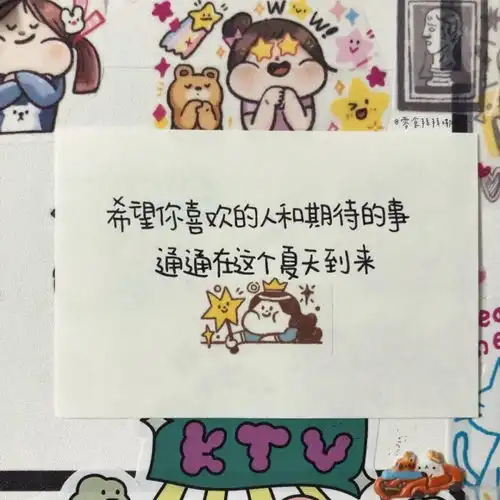 WOW!
@零食拜拜啦
希望你喜欢的人和期待的事
通通在这个夏天到来
KTV